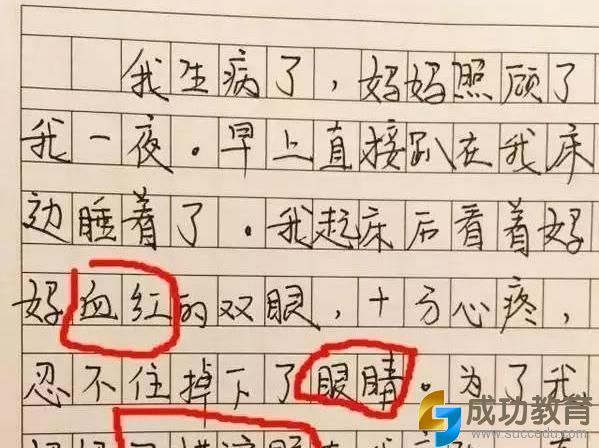 我生病了，妈妈照顾了
我一夜。早上直接趴在我床
边睡着了。我起床后看着妈
妈血红的双眼，十分心疼，
忍不住掉下了眼睛。为了我
成功教育
www.succedu.com